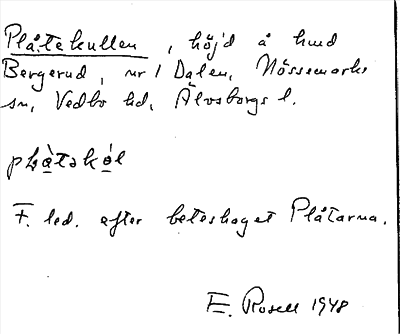 Plåtekullen, höjd å hmd
Bergerud, nr 1 Dalen, Nössemarks
sn, Vedbo hd, Älvsborgs l.
plå̀təkó̤l
F. led. efter beteshaget Plåtarna.
E. Rosell 1948